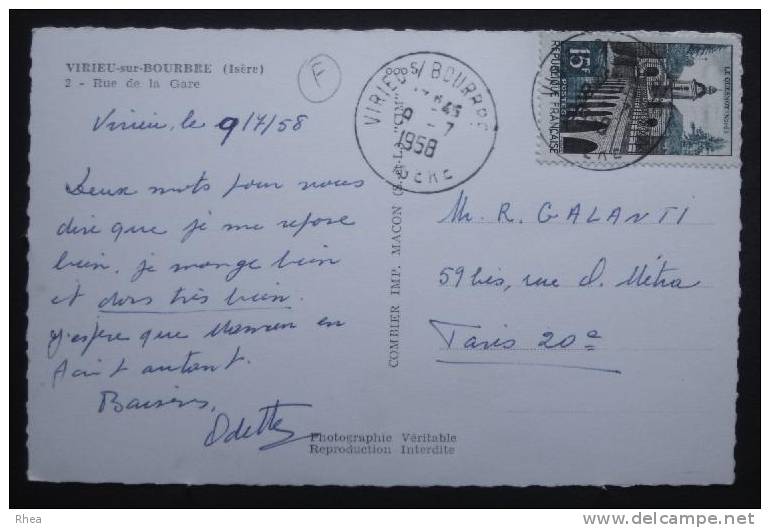 VIRIEU-sur-BOURBRE (Isère)
2 - Rue de la Gare
F
Virieu, le 9/7/58
Deux mots pour vous
dire que je me repose
bien, je mange bien
et dors très bien.
J'espère que Maman en
fait autant.
Baisers,
Odette
Photographie Véritable
Reproduction Interdite
COMBIER IMP. MACON (S.-et-L.) "CIM"
VIRIEU S/ BOURBRE
45
9 - 7
1958
ISERE
15F
POSTES
REPUBLIQUE FRANÇAISE
LE QUESNOY-NORD
M. R. GALANTI
59 bis, rue O. Métra
Paris 20e
Rhea
www.delcampe.net